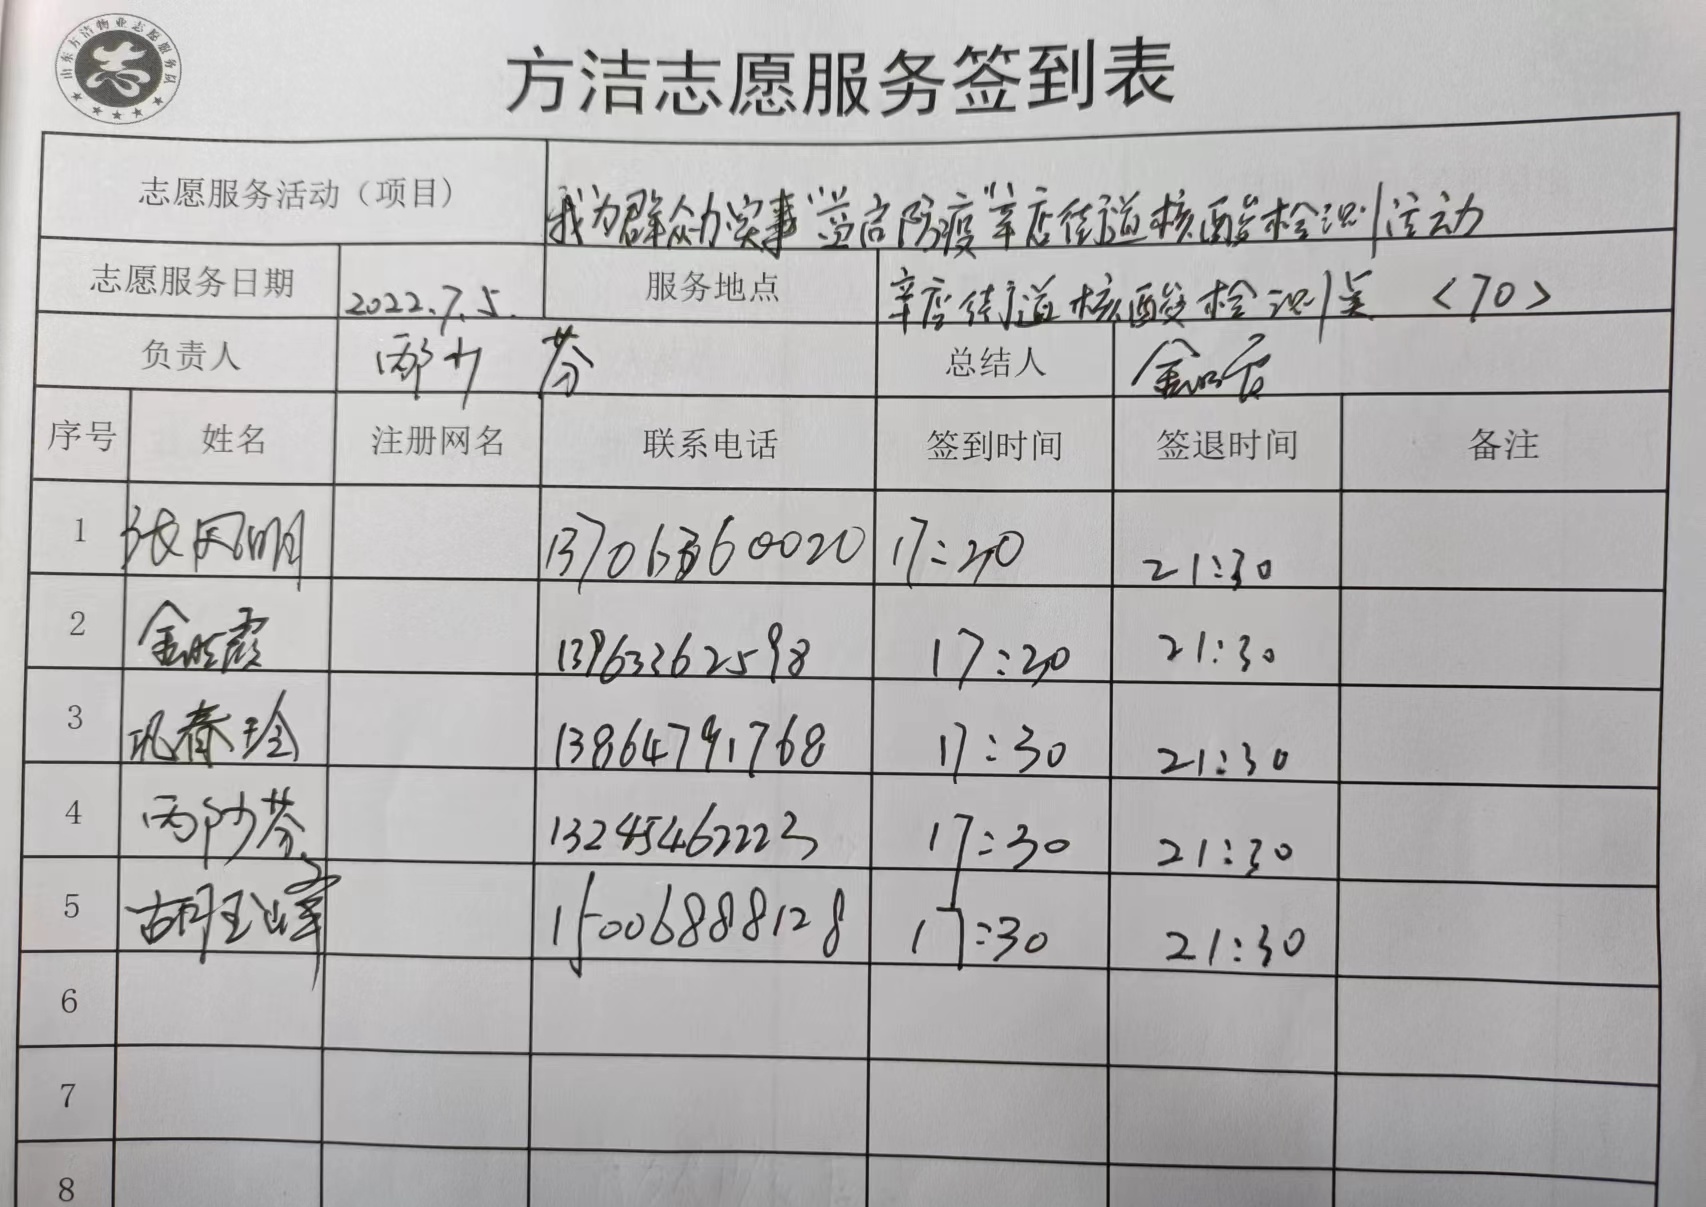 山东方洁物业志愿服务队
方洁志愿服务签到表
志愿服务活动（项目） 我为群众办实事"益启防疫"辛店街道核酸检测活动
志愿服务日期 2022.7.5. 服务地点 辛店街道核酸检测点 <70>
负责人 邴少芬 总结人
序号 姓名 注册网名 联系电话 签到时间 签退时间 备注
1 张凤明 13706360020 17:20 21:30
2 金晓霞 13963362598 17:20 21:30
3 巩春玲 13864791768 17:30 21:30
4 邴少芬 13245462223 17:30 21:30
5 胡玉峰 15006888128 17:30 21:30
6
7
8